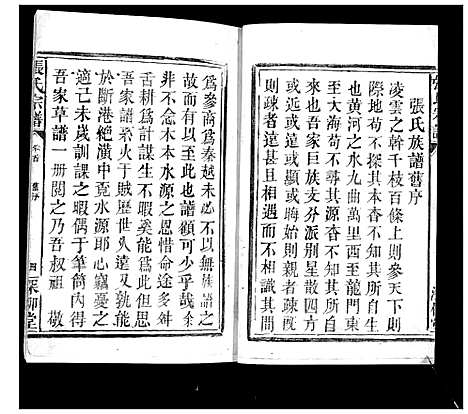 張氏族譜舊序
凌雲之幹千枝百條上則參天下則
際地苟不探其本杳不知其所自生
也黃河之水九曲萬里西至龍門東
至大海苟不尋其源杳不知其所自
出也吾家巨族支分派別星散四方
或遠或邇或顯或晦始則親者疎既
則疎者遠甚且相遇而不相識其間
為參商為秦越未必不以無族譜之
故而有以至此也譜可少乎哉余
非不念木本水源之恩惜命途多舛
舌耕為計謀生不暇奚能為此但思
吾家譜系火于賊歷世久遠又孰能
於斷港絕潢中覓水源耶心竊憂之
適己未歲訓課之暇偶于筆筒內得
吾家草譜一冊閱之乃吾叔祖敬
張氏宗譜
卷首
舊序
四